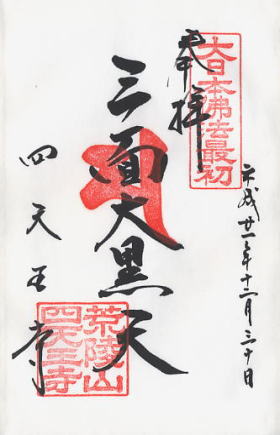 奉拝
大日本佛法最初
平成廿一年十二月三十日
三面大黒天
四天王寺
荒陵山
四天王寺